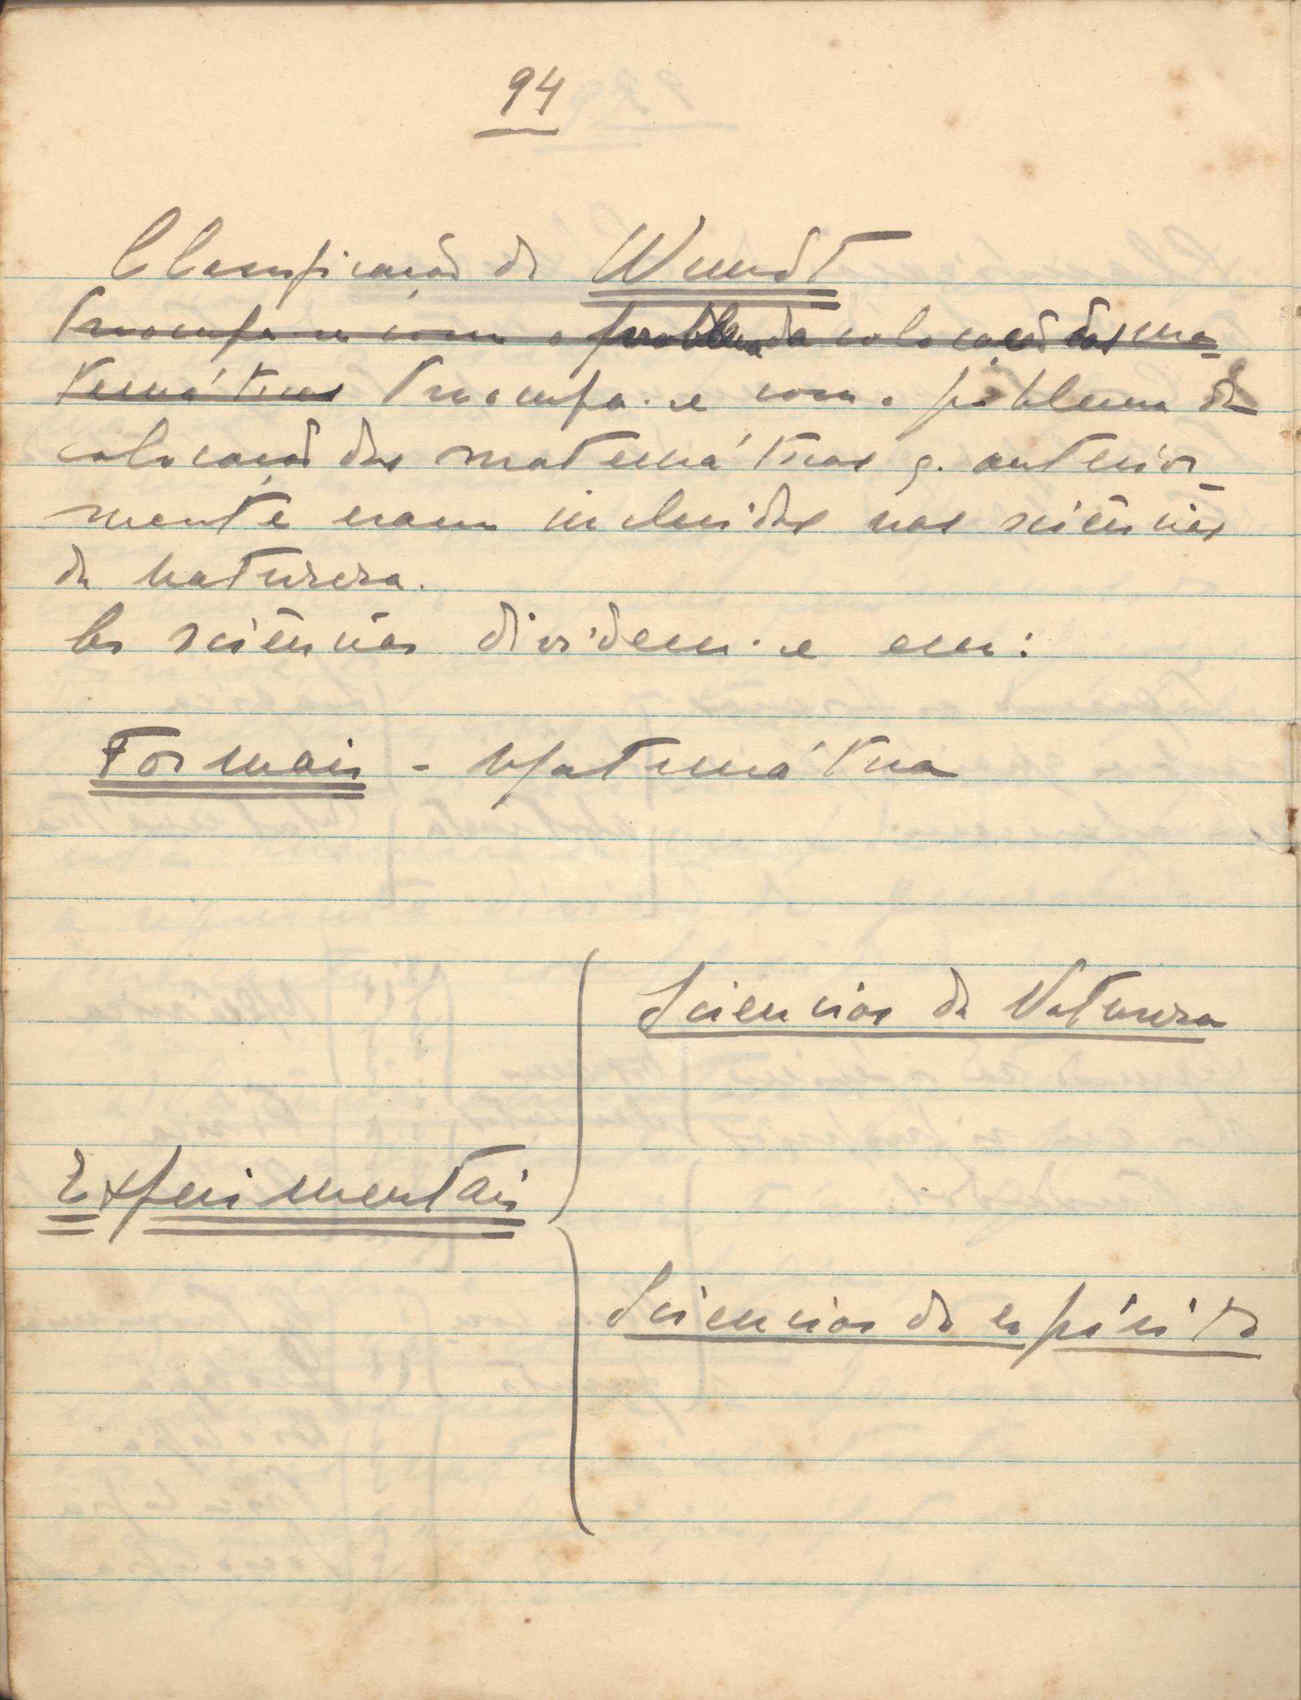 94
Classificação de Wundt
Preocupa-se com o problema da colocação das ma-
temáticas Preocupa-se com o problema da
colocação das matemáticas q. anterior-
mente eram incluidas nas sciências
da Natureza.
As sciências dividem-se em:
Formais - Matemática
Sciencias da Natureza
Experimentais
Sciencias do espírito